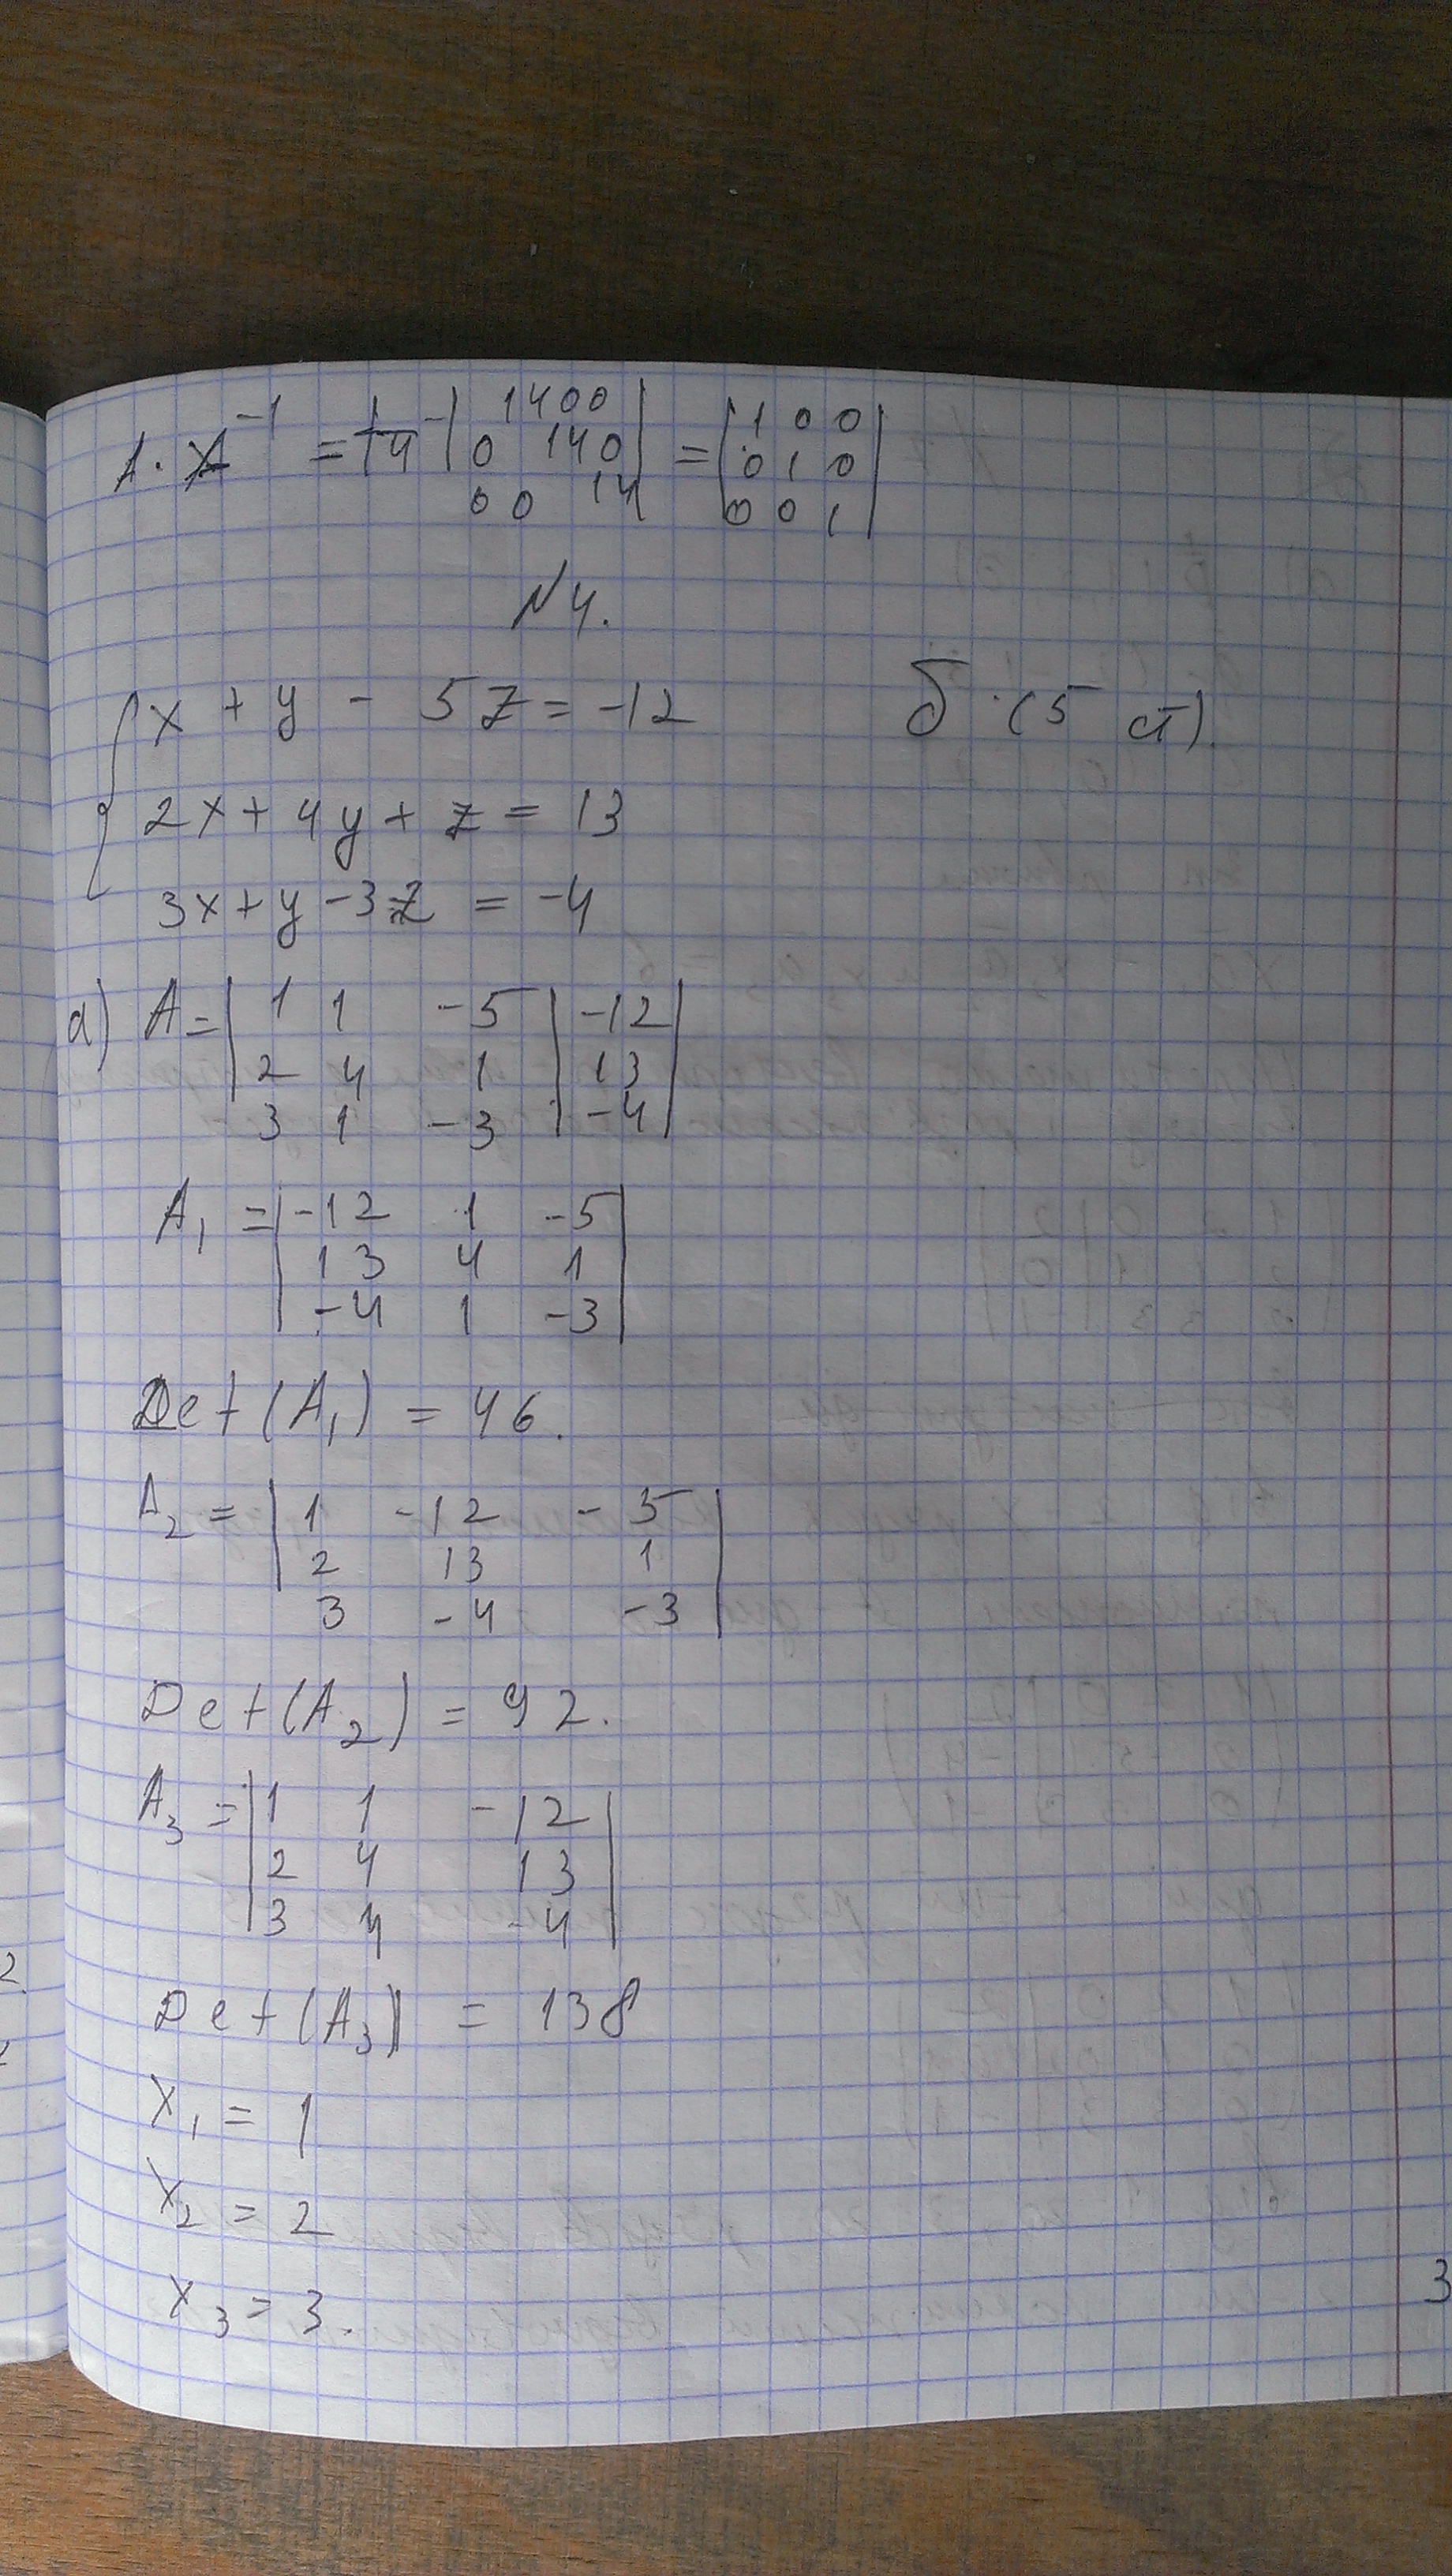 A · A⁻¹ = 1/14 | 14 0 0 | = | 1 0 0 |
| 0 14 0 | | 0 1 0 |
| 0 0 14 | | 0 0 1 |
N4.
{ x + y - 5z = -12 б. (5 ст).
2x + 4y + z = 13
3x + y - 3z = -4
а) A = | 1 1 -5 | -12 |
| 2 4 1 | 13 |
3 1 -3 | -4 |
A₁ = | -12 1 -5 |
| 13 4 1 |
| -4 1 -3 |
Det(A₁) = 46.
A₂ = | 1 -12 -5 |
| 2 13 1 |
3 -4 -3 |
Det(A₂) = 92.
A₃ = | 1 1 -12 |
| 2 4 13 |
| 3 4 -4 |
Det(A₃) = 138
X₁ = 1
X₂ = 2
X₃ = 3.
3